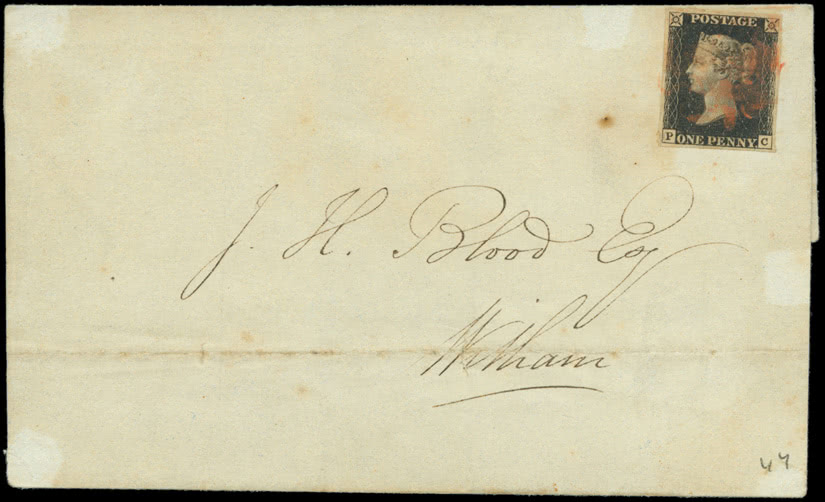 POSTAGE
P ONE PENNY C
J. H. Blood Esq
Witham
44